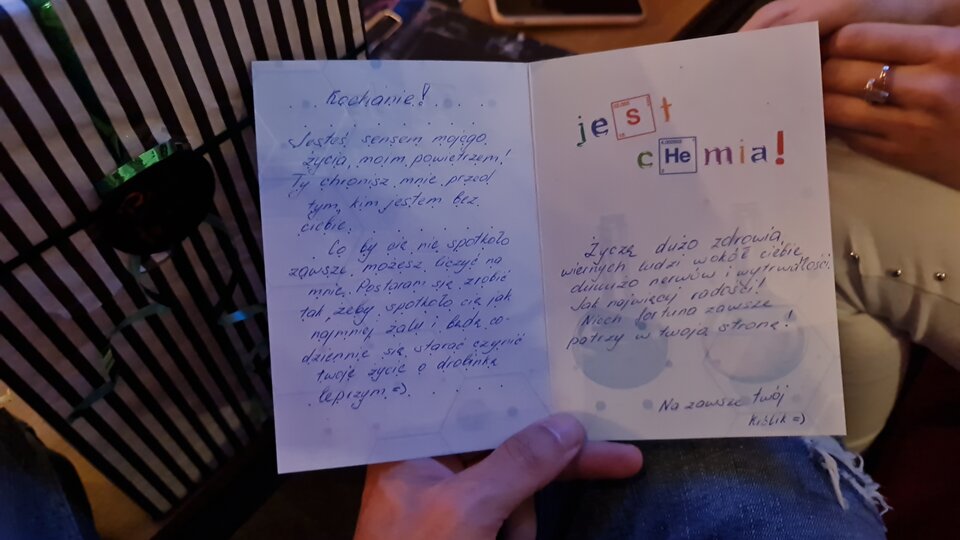 Kochanie!
Jesteś sensem mojego
życia, moim powietrzem!
Ty chronisz mnie przed
tym, kim jestem bez
ciebie.
Co by cię nie spotkało
zawsze możesz liczyć na
mnie. Postaram się zrobić
tak, żeby spotkało cię jak
najmniej żalu i będę co-
dziennie się starać czynić
twoje życie o drobinkę
lepszym =)
jest
cHemia!
Życzę dużo zdrowia,
wiernych ludzi wokół ciebie,
dużo nerwów i wytrwałości.
Jak najwięcej radości!
Niech fortuna zawsze
patrzy w twoją stronę!
Na zawsze twój
=)